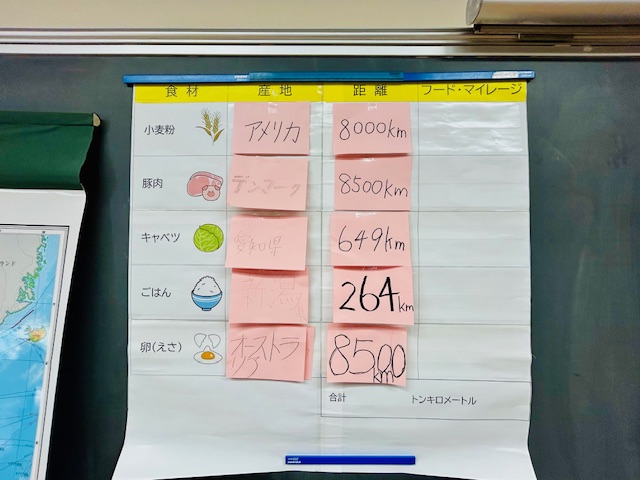 食材 産地 距離 フード・マイレージ
小麦粉 アメリカ 8000km
豚肉 デンマーク 8500km
キャベツ 愛知県 649km
ごはん 新潟 264km
卵(えさ) オーストラ
リア 8500
km
合計 トンキロメートル